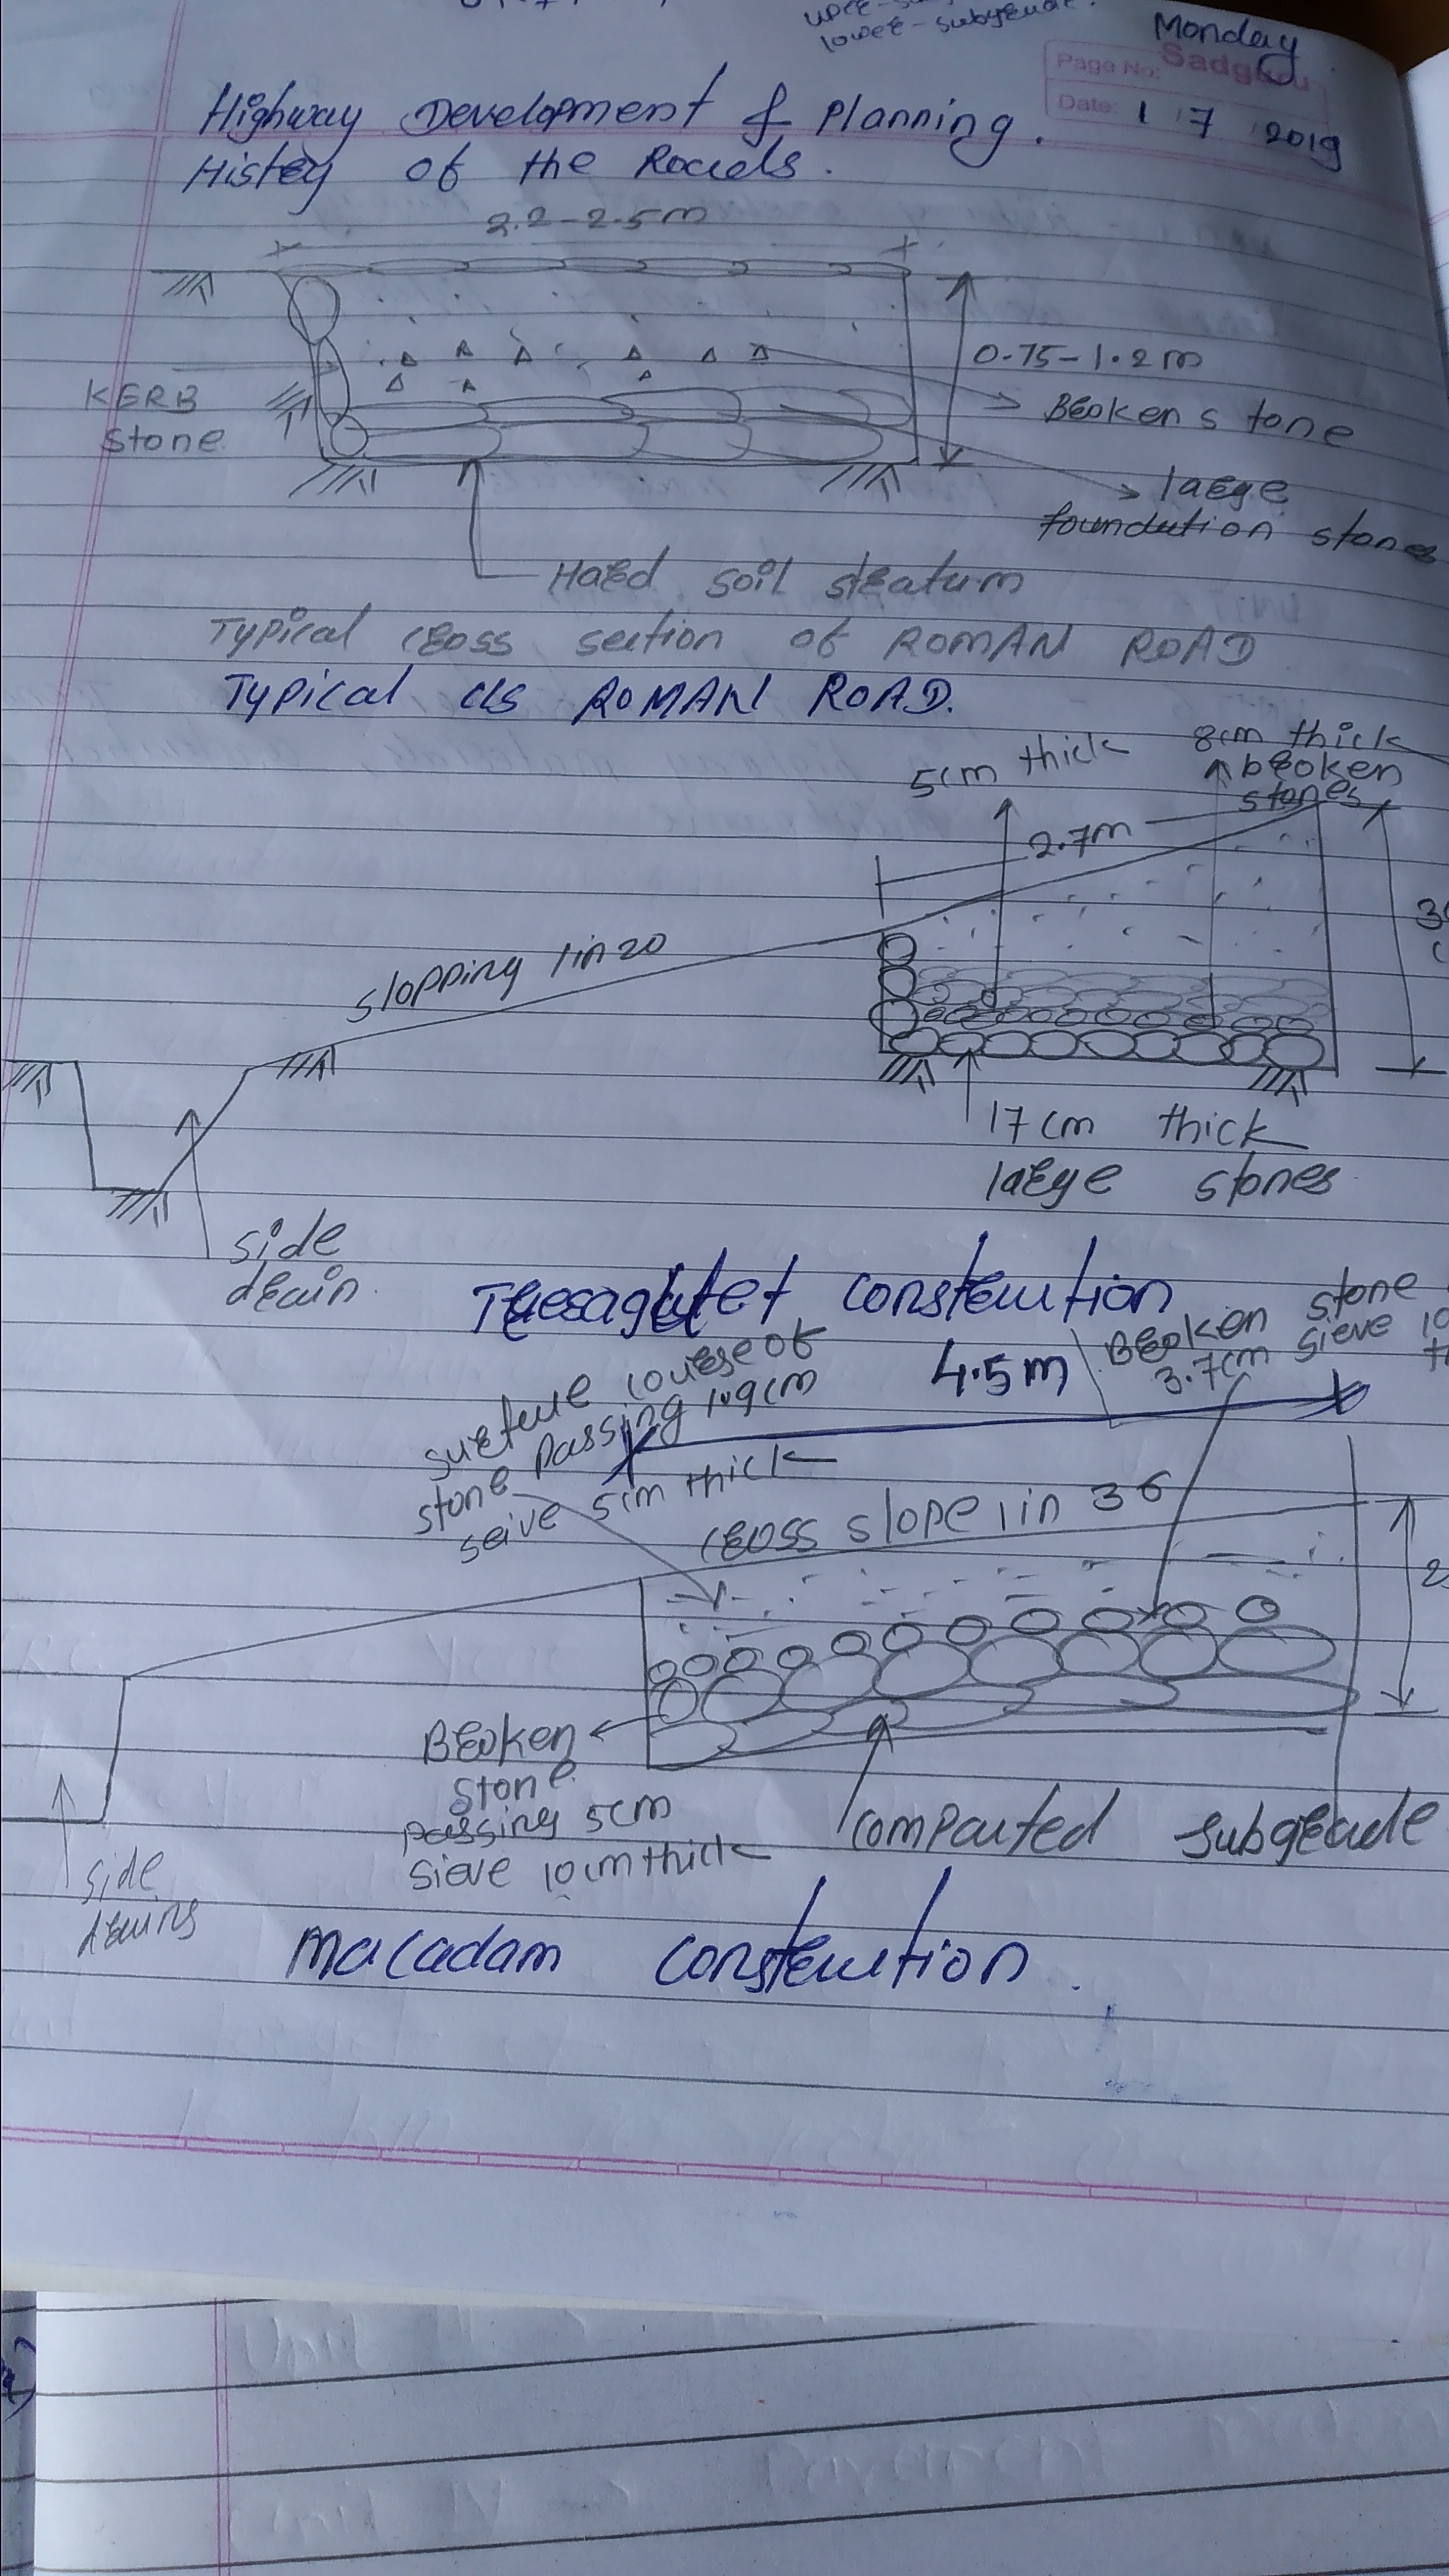 lower-subgrade.
Monday
Page No: Sadguru
Date: 1 7 2019
Highway Development & Planning.
Histry of the Roads.
2.2-2.5m
0.75-1.2m
KERB
stone
Broken stone
large
foundation stones
Hard soil stratum
Typical cross section of ROMAN ROAD
Typical c/s ROMAN ROAD.
5cm thick
8cm thick
broken
stones
2.7m
slopping 1in20
17cm thick
large stones
side
drain
construction
4.5m
Broken stone
3.7cm sieve 10
surface course of
stone passing 1.9cm
seive 5cm thick
cross slope 1in 36
2
Broken
stone
passing 5cm
sieve 10cm thick
compacted subgrade
side
drains
Macadam construction.